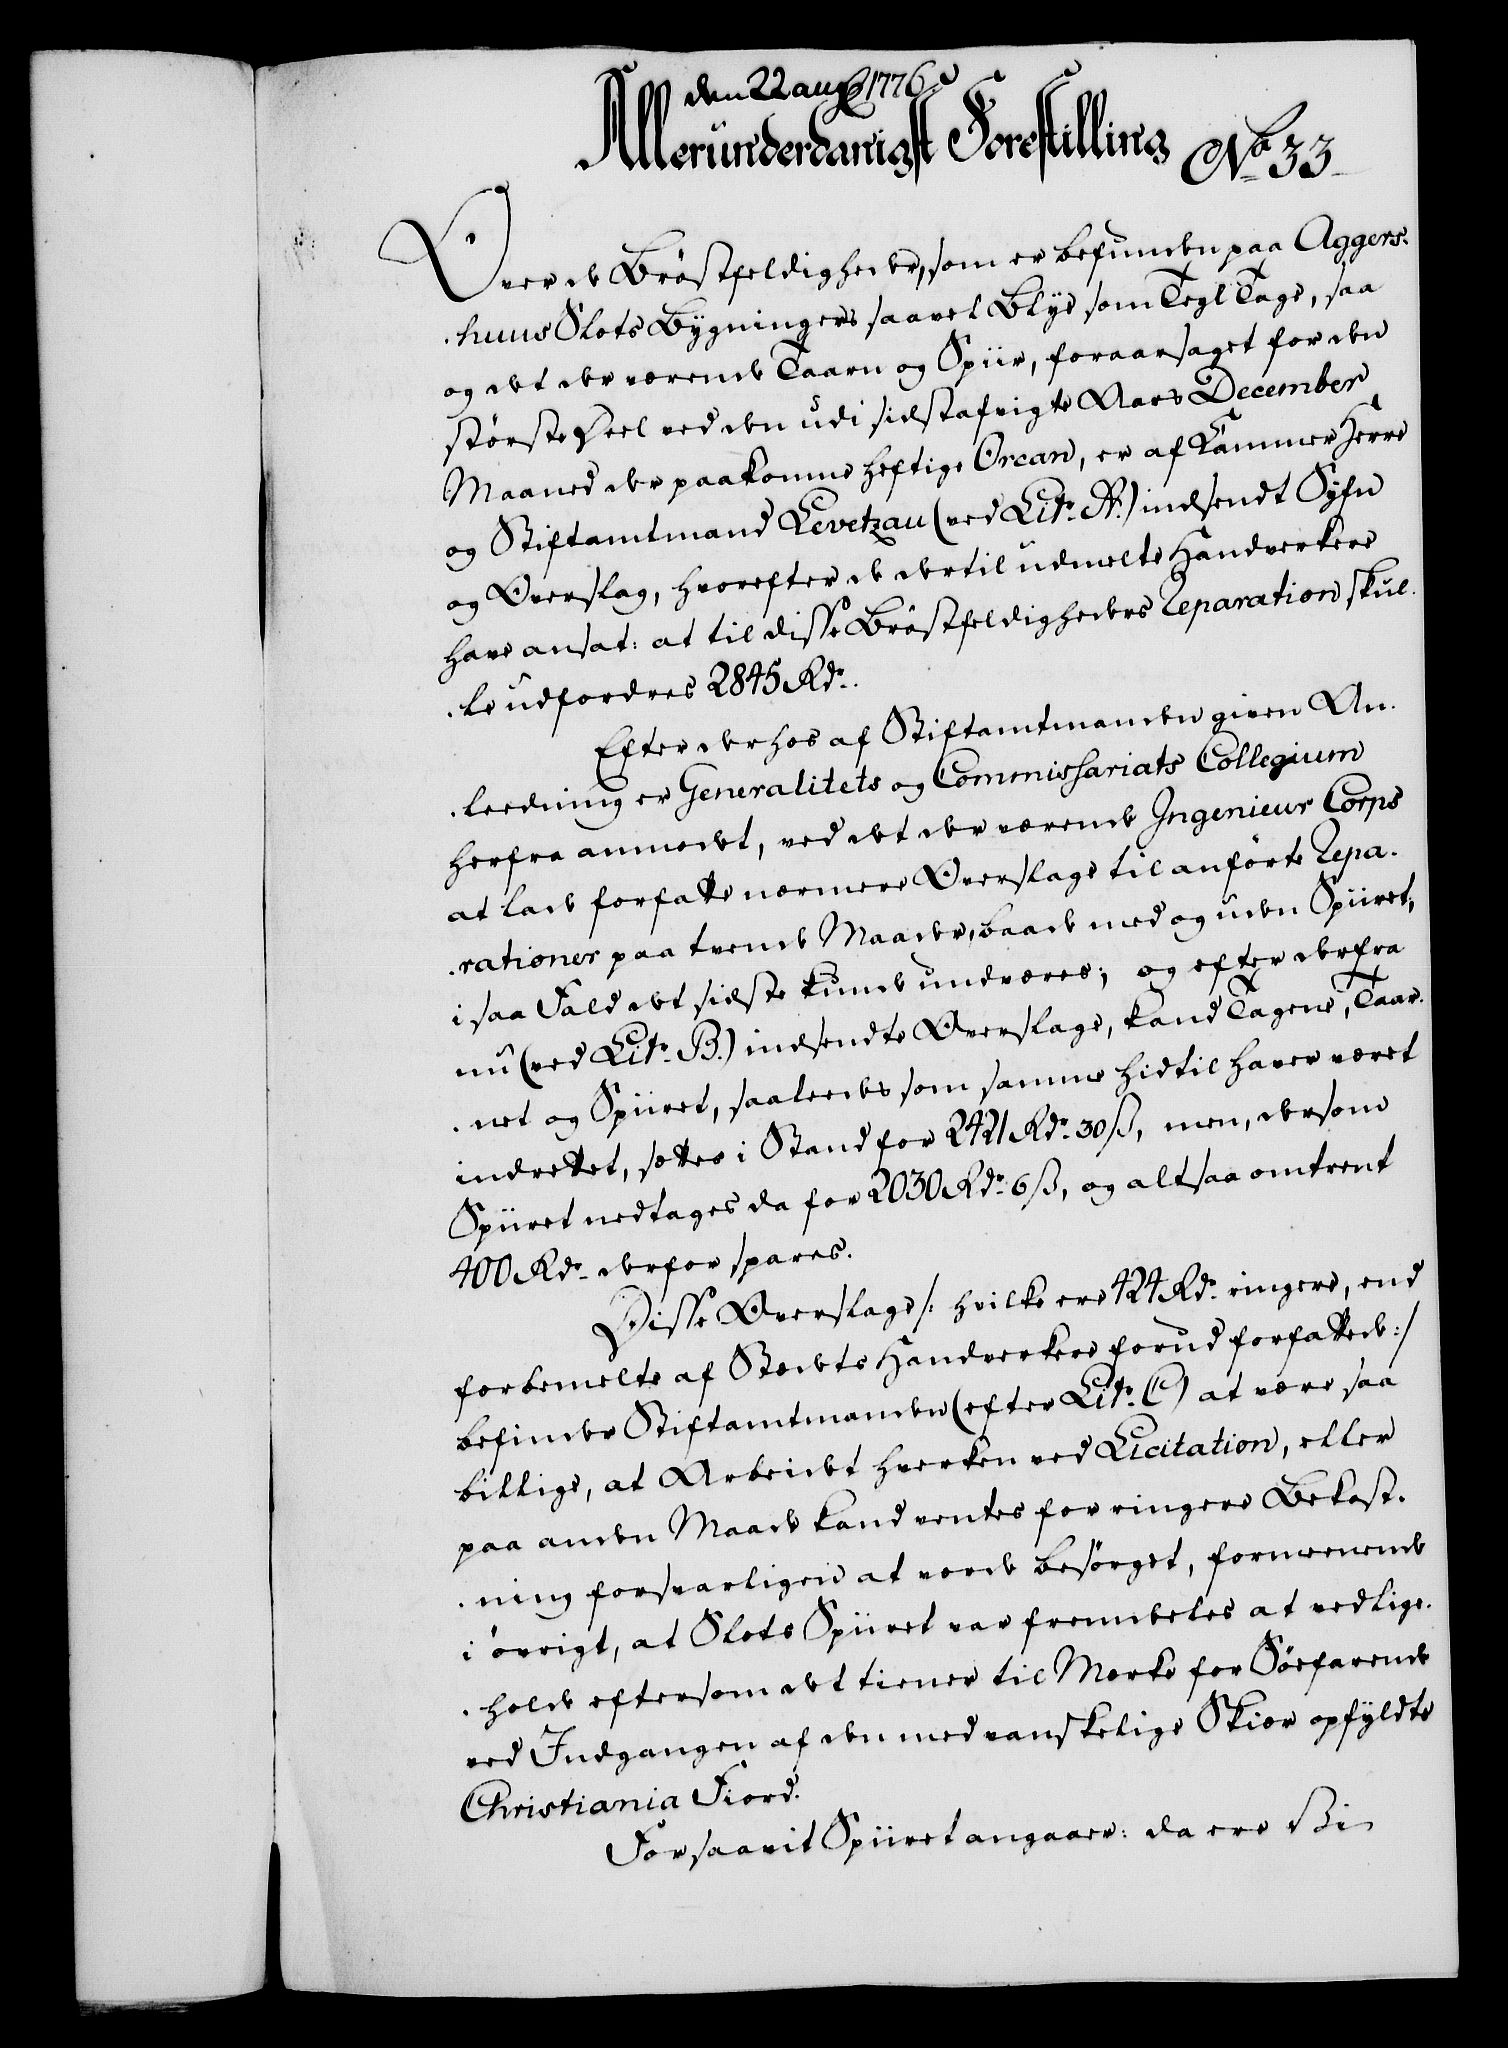 den 22 aug 1776
Allerunderdanigst Forestilling No 33
Over de Brøstfeldigheder, som er befunden paa Aggers-
-huus Slots Bygningers saavel Blye som Tegl Tage, saa
og det der værende Taarn og Spiir, foraarsaget for den
største Deel ved den udi sidstafvigte Aars December
Maaned der paakomne heftige Orcan, er af Kammer Herre
og Stiftamtmand Levetzau (ved Litr. A.) indsendt Syfn
og Overslag, hvorefter de dertil udmelte Handverkere
have ansat: at til disse Brøstfeldigheders Reparation skul-
-le udfordres 2845 Rdr.
Efter derhos af Stiftamtmanden given An-
-leedning er Generalitets og Commissariats Collegium
herfra anmodet, ved det der værende Ingenieur Corps
at lade forfatte nærmere Overslage til anførte Repa-
-rationer paa tvende Maader, baade med og uden Spiiret,
i saa Fald det sidste kunde undværes; og efter derfra
nu (ved Litr. B.) indsendte Overslage, kand Tagene, Taar-
-net og Spiiret, saaledes som samme hidtil haver været
indrettet, sættes i Stand for 2421 Rdr. 30 ß, men, dersom
Spiiret nedtages da for 2030 Rdr. 6 ß, og altsaa omtrent
400 Rdr. derfor spares.
Disse Overslage /: hvilke ere 424 Rdr. ringere, end
forbemelte af Stædets Handverkere forud forfattede :/
befinder Stiftamtmanden (efter Litr. C) at være saa
billige, at Arbeidet hverken ved Licitation, eller
paa anden Maade kand ventes for ringere Bekost-
-ning forsvarligen at vorde besørget, formeenende
i øvrigt, at Slots Spiiret var fremdeles at vedlige-
-holde eftersom det tiener til Mærke for Søefarende
ved Indgangen af den med vanskelige Skiær opfyldte
Christiania Fiord.
For saavit Spiiret angaaer: da ere Bi